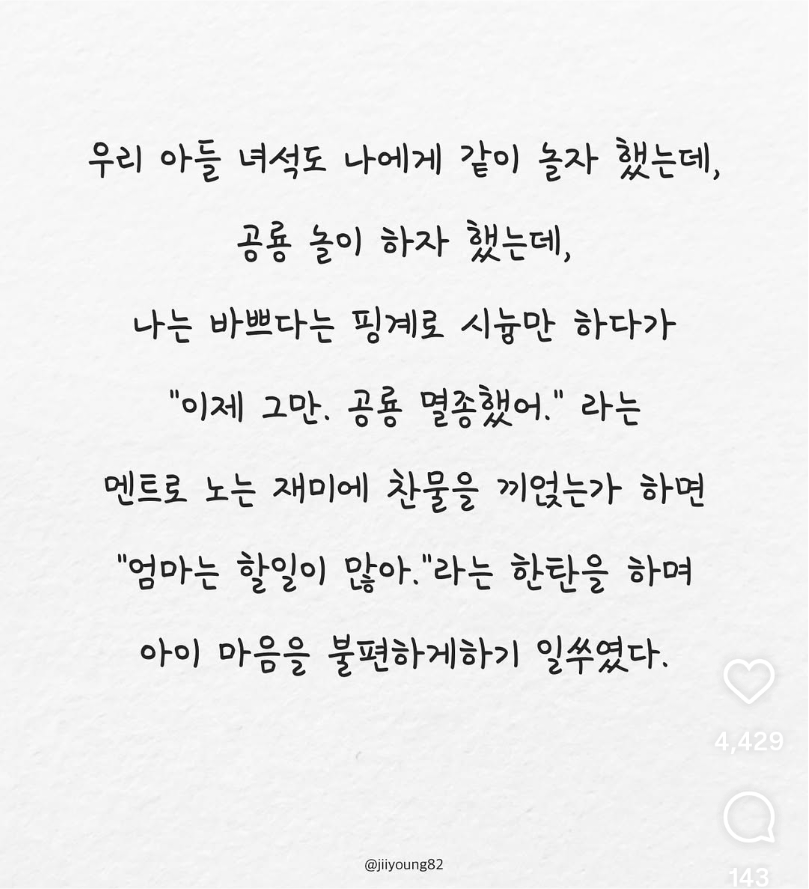 우리 아들 녀석도 나에게 같이 놀자 했는데,
공룡 놀이 하자 했는데,
나는 바쁘다는 핑계로 시늉만 하다가
"이제 그만. 공룡 멸종했어." 라는
멘트로 노는 재미에 찬물을 끼얹는가 하면
"엄마는 할일이 많아."라는 한탄을 하며
아이 마음을 불편하게하기 일쑤였다.
4,429
@jiiyoung82
143